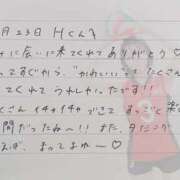 月23日 Hくんへ
に会いに来てくれてありがとう♡
てすぐから、"かわいい"ってたくさん
てくれてうれしかったです!
くさんイチャイチャできてすっごく楽
間だったね〜!! また、タイミング
えば、まってるね〜♡
3